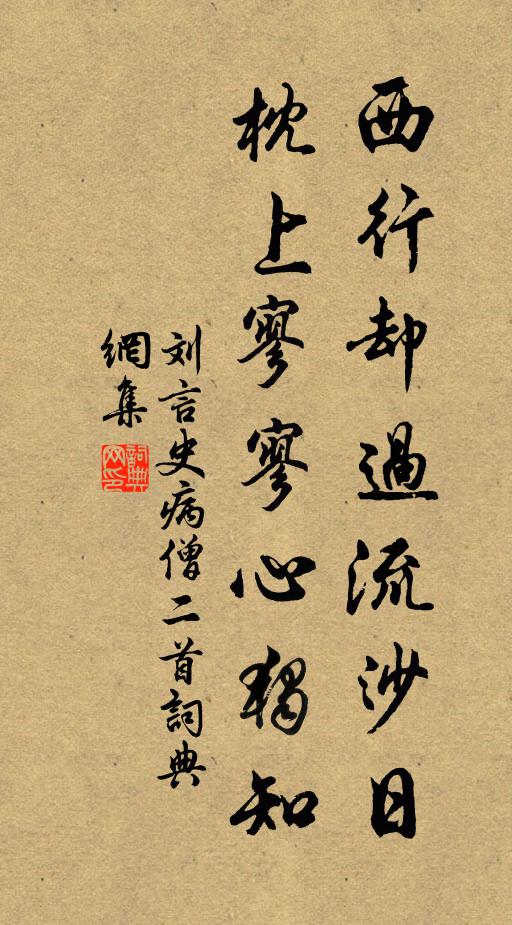 西行却過流沙日
枕上寥寥心獨知
刘言史病僧二首詞典
網集
詞典
网印